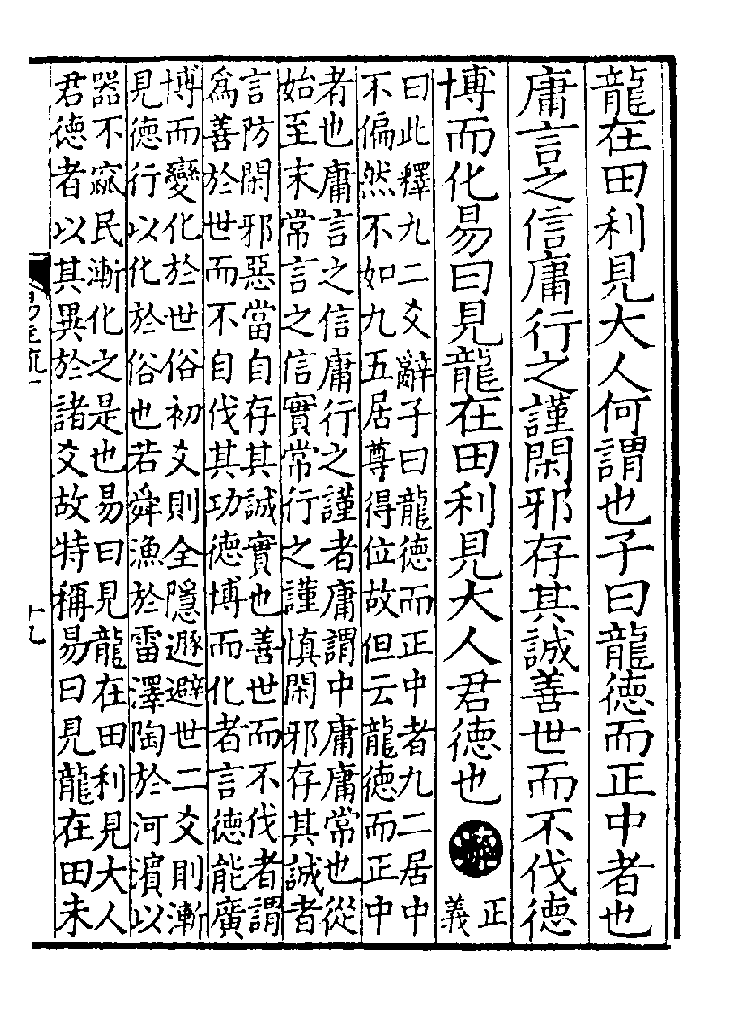 龍在田利見大人何謂也子曰龍德而正中者也
庸言之信庸行之謹閑邪存其誠善世而不伐德
博而化易曰見龍在田利見大人君德也疏正義
曰此釋九二爻辭子曰龍德而正中者九二居中
不偏然不如九五居尊得位故但云龍德而正中
者也庸言之信庸行之謹者庸謂中庸庸常也從
始至末常言之信實常行之謹慎閑邪存其誠者
言防閑邪惡當自存其誠實也善世而不伐者謂
為善於世而不自伐其功德博而化者言德能廣
博而變化於世俗初爻則全隱遯避世二爻則漸
見德行以化於俗也若舜漁於雷澤陶於河濱以
器不窳民漸化之是也易曰見龍在田利見大人
君德者以其異於諸爻故特稱易曰見龍在田未
易主疏一
十九